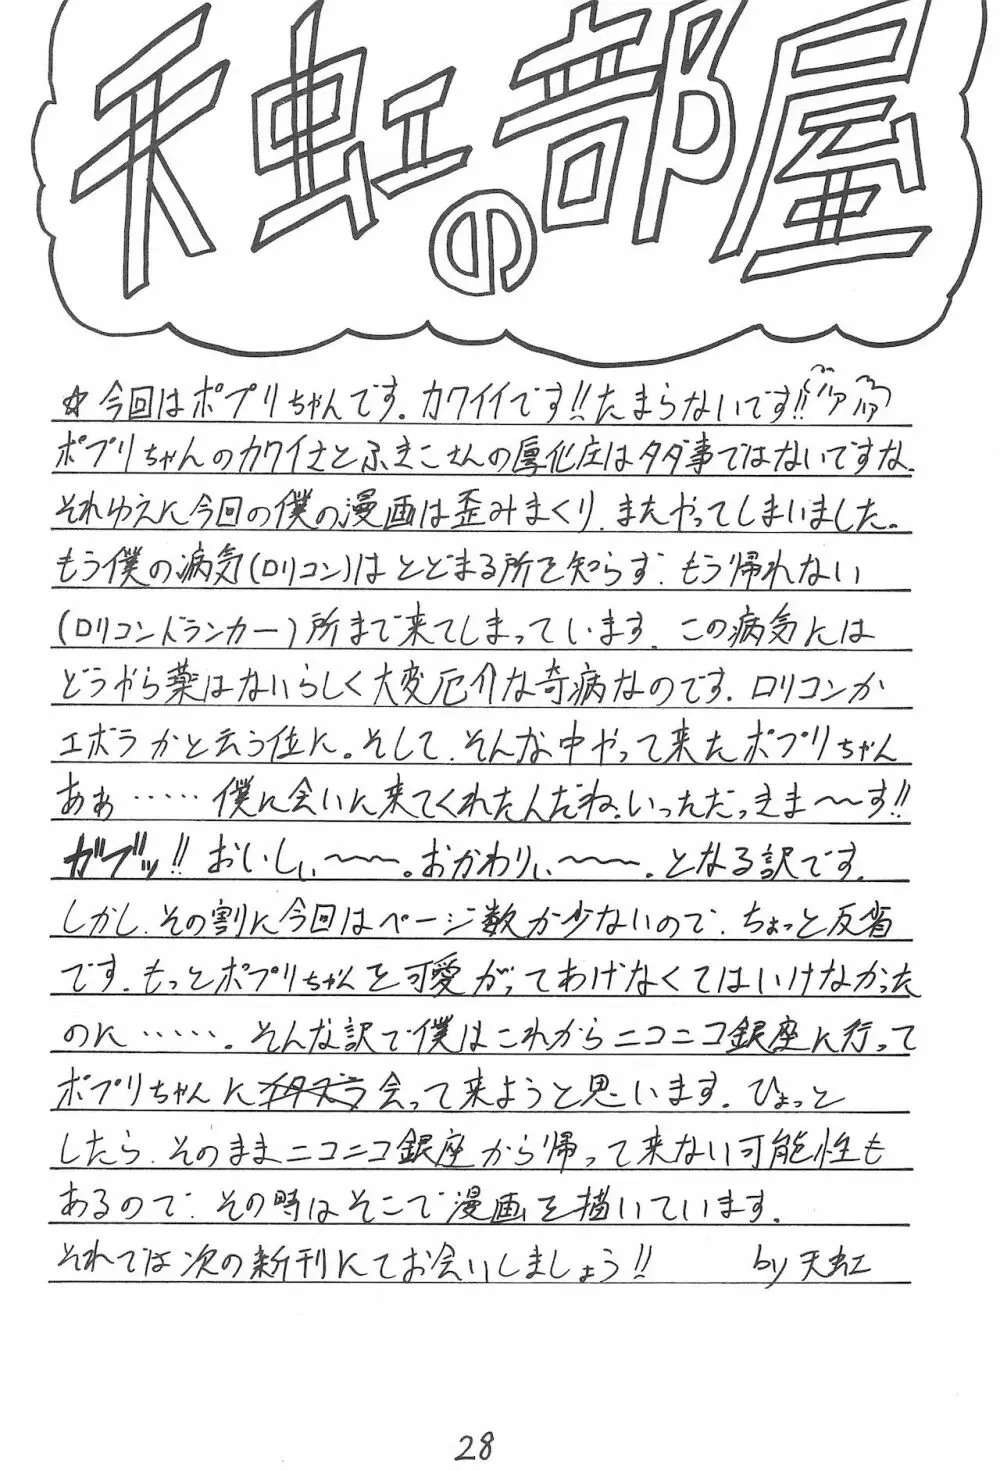 天虹の部屋
☆今回はポプリちゃんです。カワイイです!!たまらないです!!ハァハァ
ポプリちゃんのカワイさとふきこさんの厚化庄はタダ事ではないですな。
それゆえに今回の僕の漫画は歪みまくり、またやってしまいました。
もう僕の病気(ロリコン)はとどまる所を知らず、もう帰れない
(ロリコンドランカー)所まで来てしまっています。この病気には
どうやら薬はないらしく大変厄介な奇病なのです。ロリコンか
エボラかと云う位に。そして、そんな中やって来たポプリちゃん
あぁ……僕に会いに来てくれたんだね、いっただっきま〜〜す!!
ガブッ!!おいしぃ〜〜〜。おかわりぃ〜〜〜。となる訳です。
しかし、その割に今回はページ数が少ないので、ちょっと反省
です。もっとポプリちゃんを可愛がってあげなくてはいけなかった
のに……。そんな訳で僕はこれからニコニコ銀座に行って
ポプリちゃんにイタズラ会って来ようと思います。ひょっと
したら、そのままニコニコ銀座から帰って来ない可能性も
あるので、その時はそこで漫画を描いています。
それでは次の新刊にてお会いしましょう!! by天虹
28